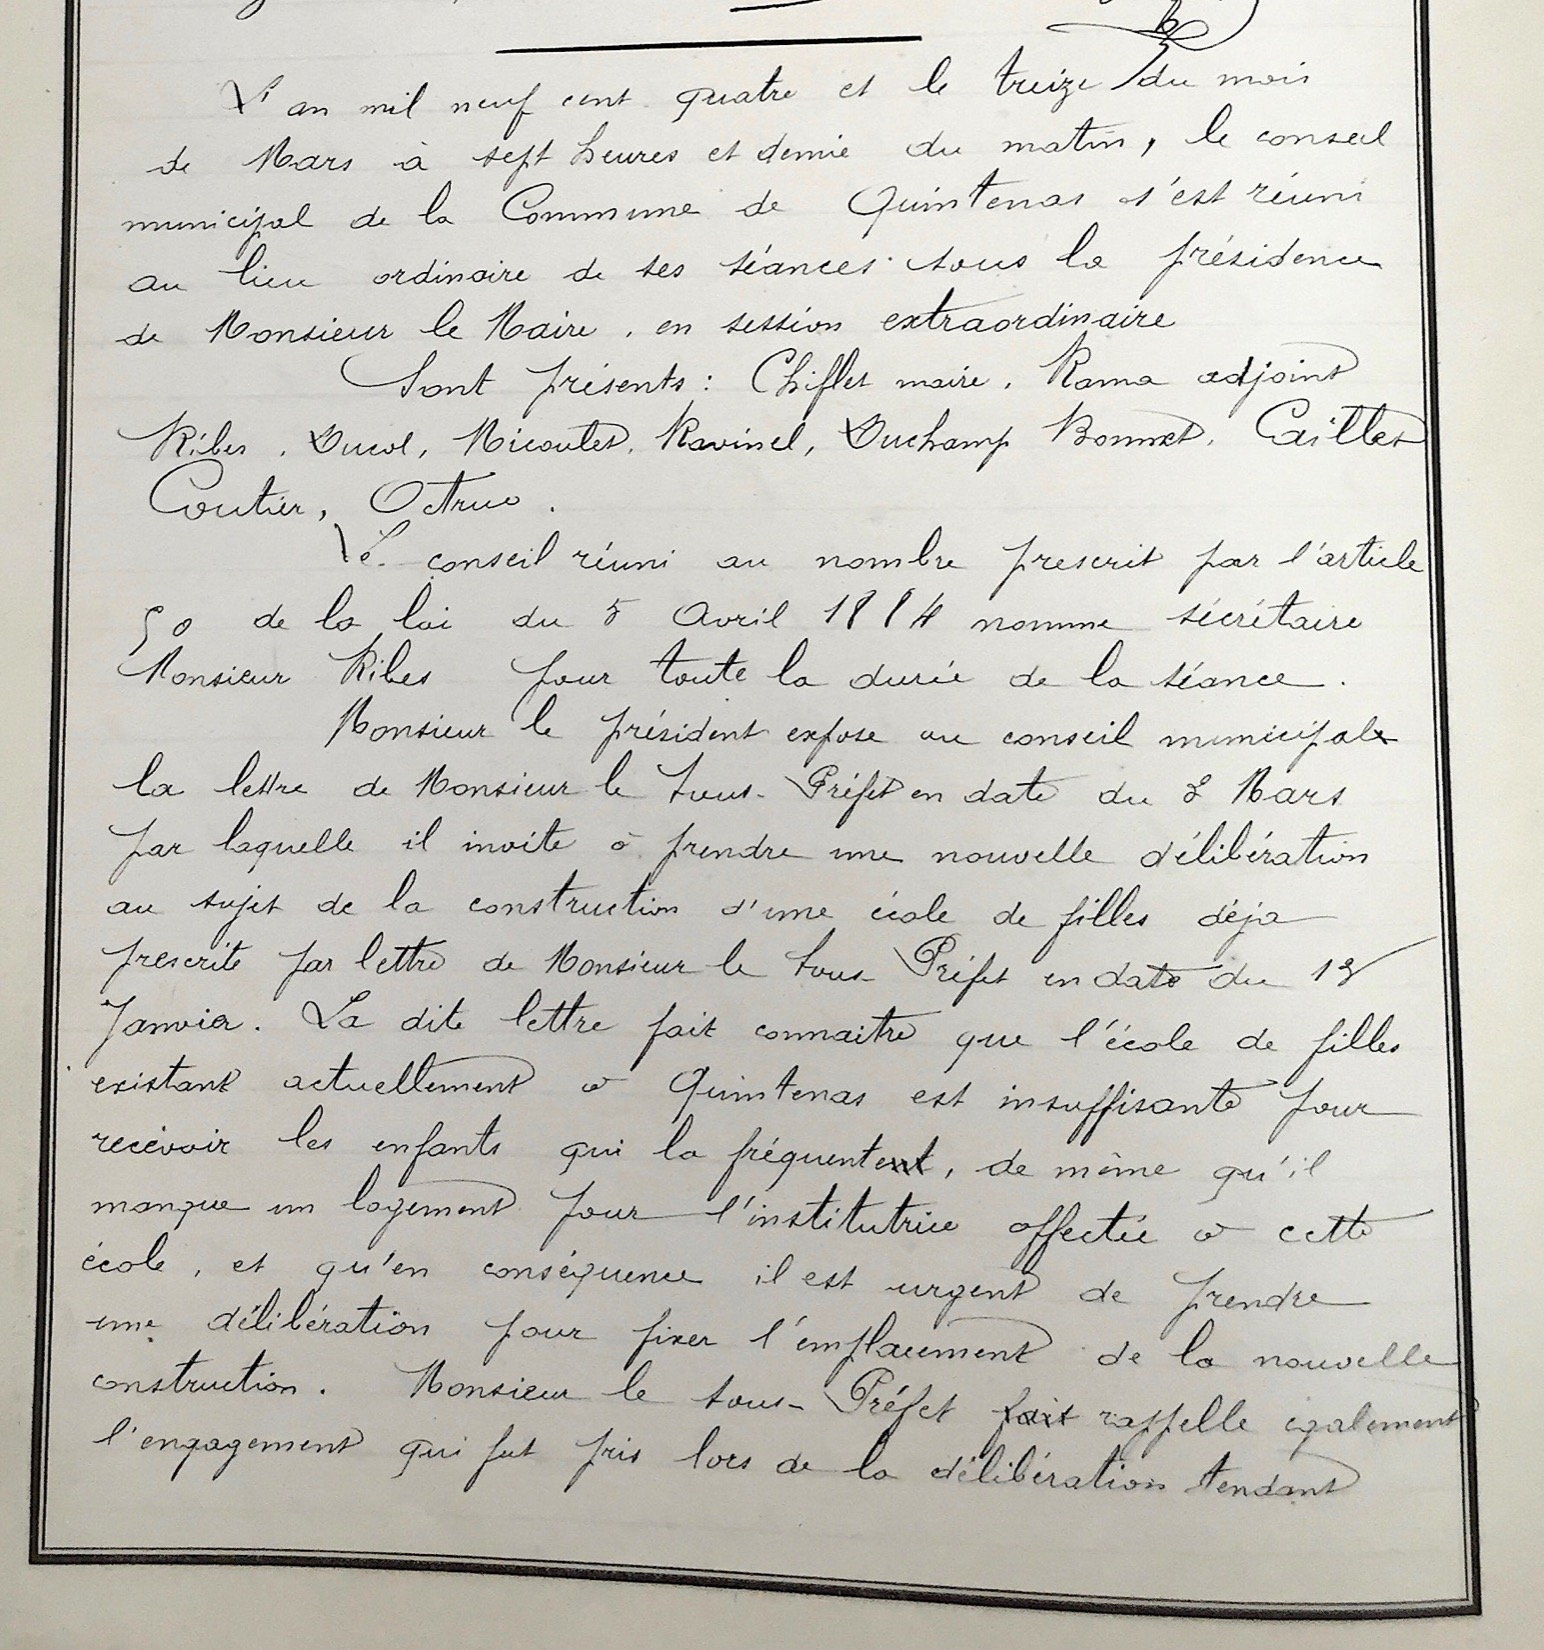 L'an mil neuf cent quatre et le treize du mois
de Mars à sept heures et demie du matin, le conseil
municipal de la Commune de Quintenas s'est réuni
au lieu ordinaire de ses séances sous la présidence
de Monsieur le Maire, en session extraordinaire
Sont présents : Chiflet maire, Rama adjoint
Ribes, Ducol, Micoulet, Ravinel, Duchamp Bonnet, Caillet
Coutier, Octruc.
Le conseil réuni au nombre prescrit par l'article
50 de la loi du 5 Avril 1884 nomme sécrétaire
Monsieur Ribes pour toute la durée de la séance.
Monsieur le président expose au conseil municipal
la lettre de Monsieur le Sous-Préfet en date du 8 Mars
par laquelle il invite à prendre une nouvelle délibération
au sujet de la construction d'une école de filles déja
prescrite par lettre de Monsieur le Sous-Préfet en date du
Janvier. La dite lettre fait connaitre que l'école de filles
existant actuellement à Quintenas est insuffisante pour
recevoir les enfants qui la fréquentent, de même qu'il
manque un logement pour l'institutrice affectée à cette
école, et qu'en conséquence il est urgent de prendre
une délibération pour fixer l'emplacement de la nouvelle
construction. Monsieur le sous-Préfet fait rappelle également
l'engagement qui fut pris lors de la délibération tendant